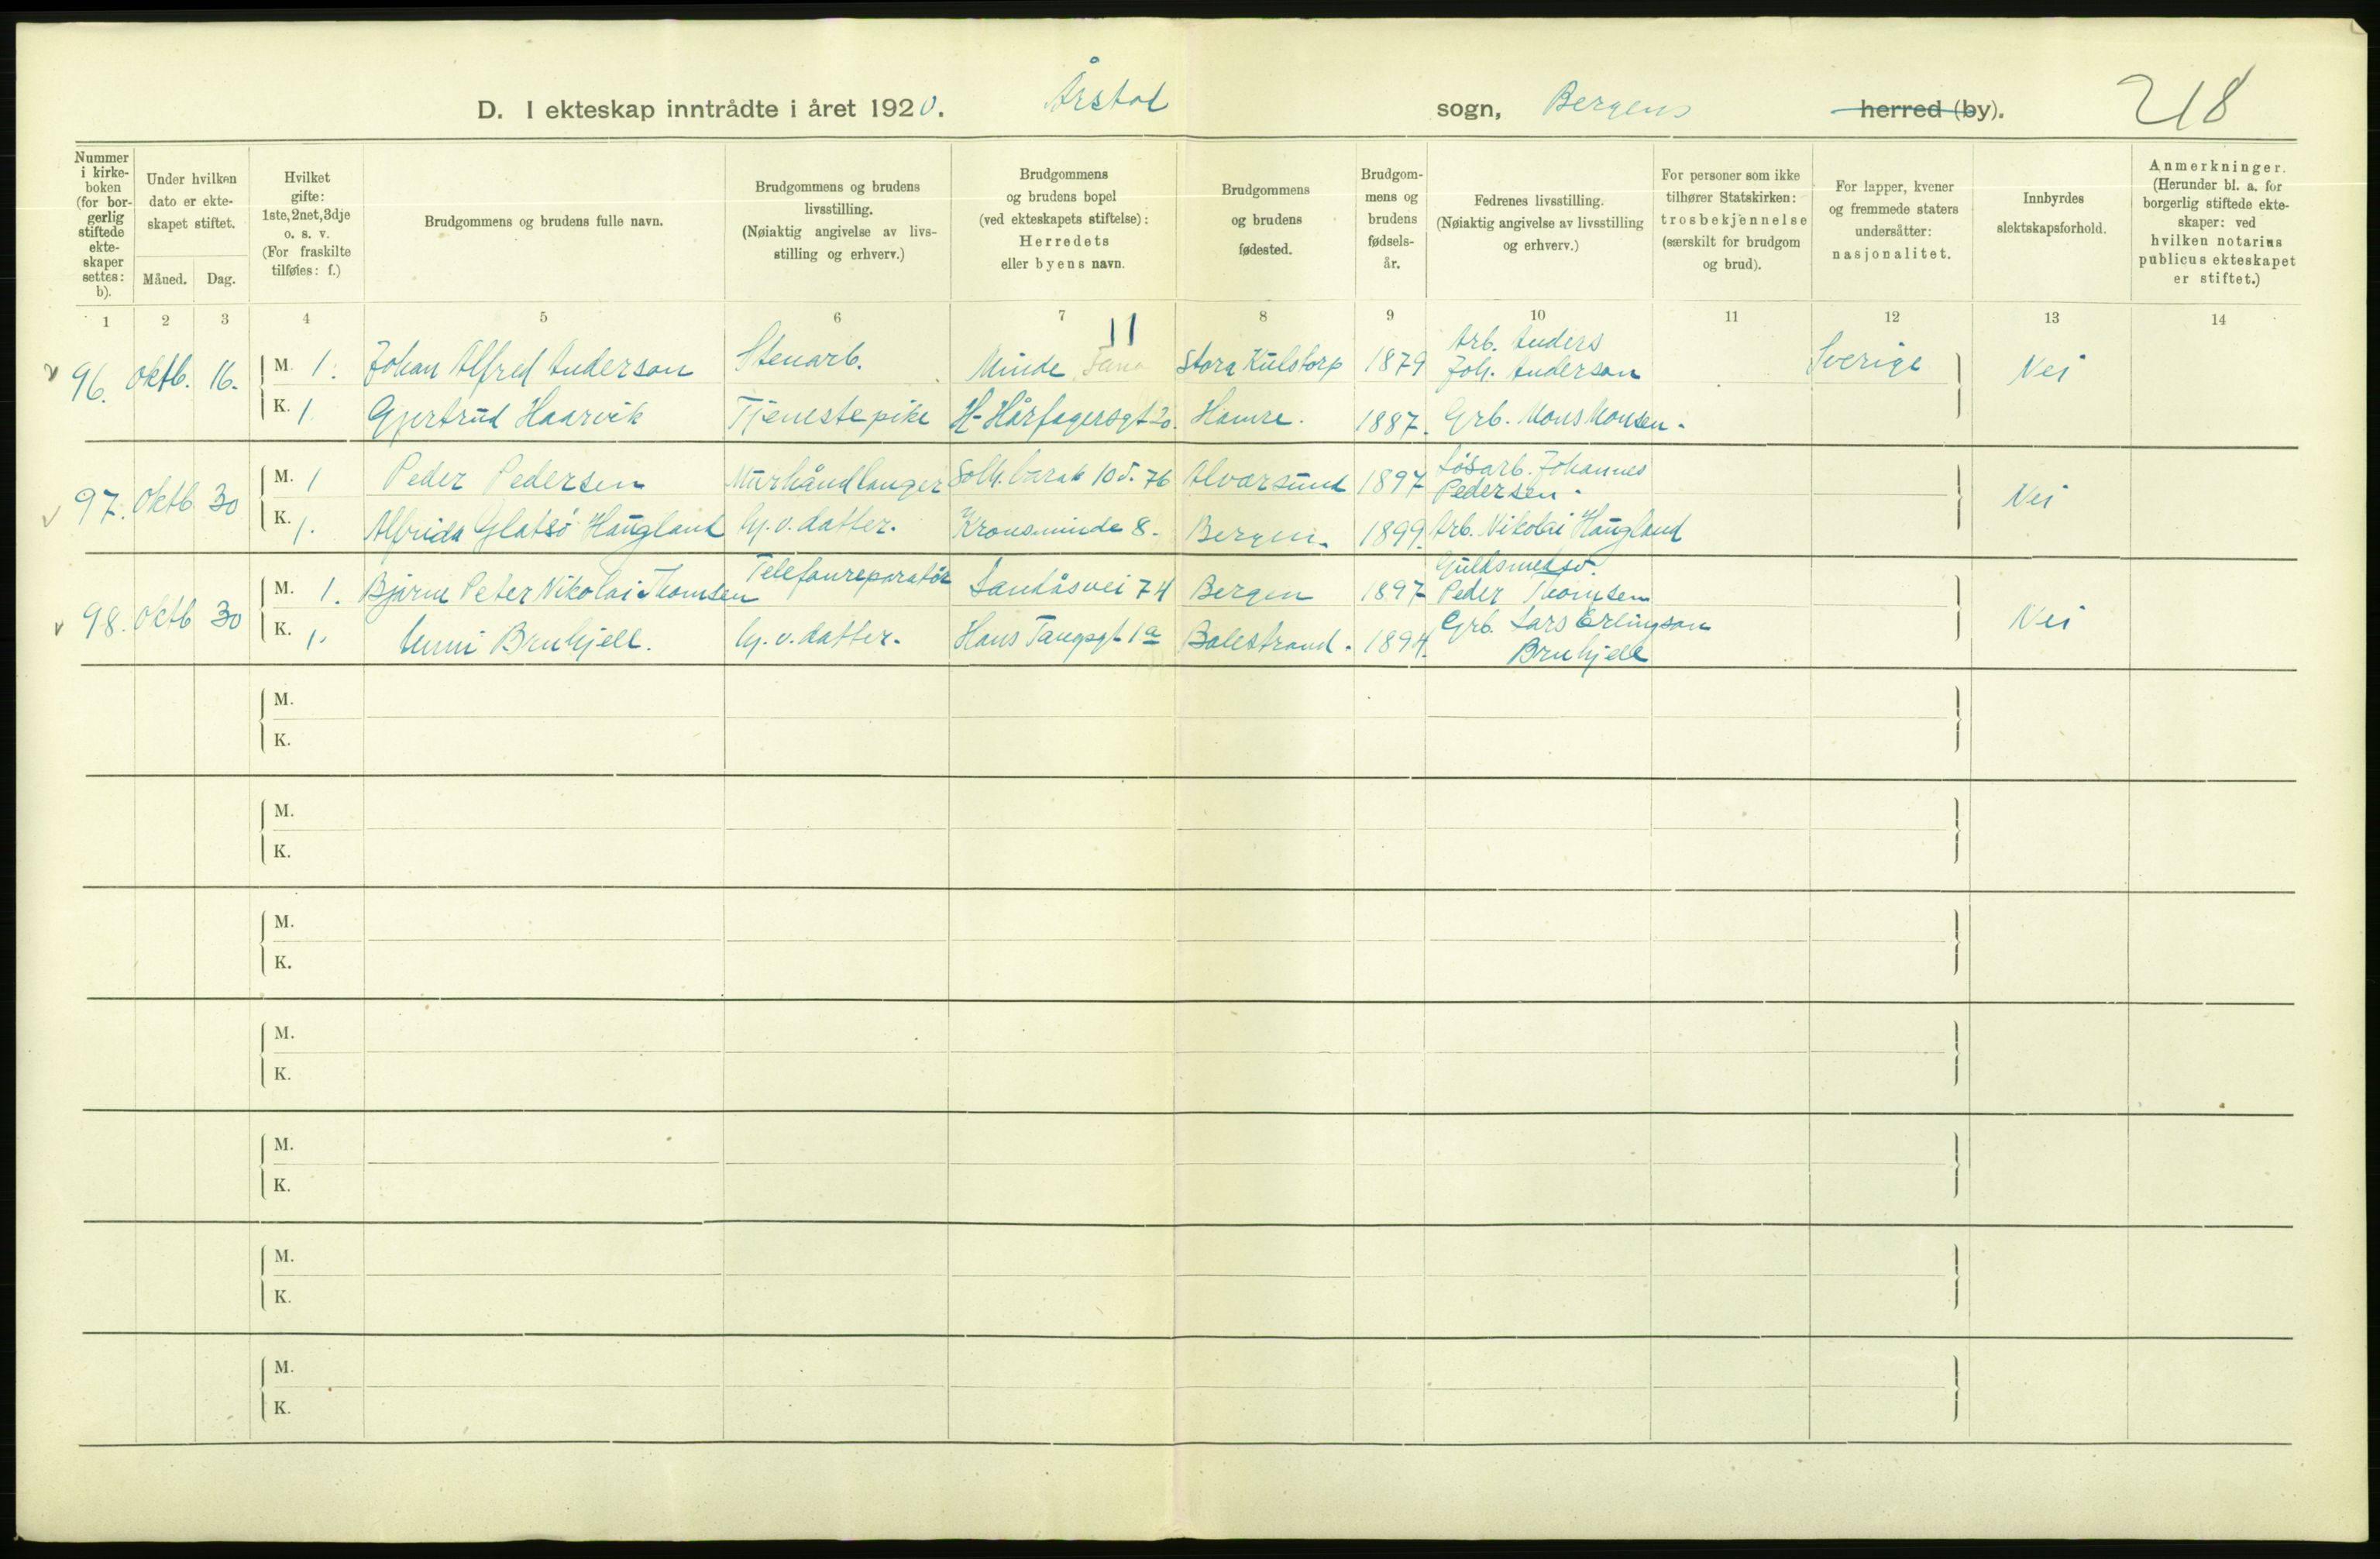 D. I ekteskap inntrådte i året 1920. Årstad sogn, Bergens herred (by). 218
Nummer i kirkeboken (for borgerlig stiftede ekteskaper settes: b).
Under hvilken dato er ekteskapet stiftet.
Måned. Dag.
Hvilket gifte: 1ste, 2net, 3dje o. s. v. (For fraskilte tilføies: f.)
Brudgommens og brudens fulle navn.
Brudgommens og brudens livsstilling. (Nøiaktig angivelse av livsstilling og erhverv.)
Brudgommens og brudens bopel (ved ekteskapets stiftelse): Herredets eller byens navn.
Brudgommens og brudens fødested.
Brudgommens og brudens fødselsår.
Fedrenes livsstilling. (Nøiaktig angivelse av livsstilling og erhverv.)
For personer som ikke tilhører Statskirken: trosbekjennelse (særskilt for brudgom og brud).
For lapper, kvener og fremmede staters undersåtter: nasjonalitet.
Innbyrdes slektskapsforhold.
Anmerkninger. (Herunder bl. a. for borgerlig stiftede ekteskaper: ved hvilken notarius publicus ekteskapet er stiftet.)
1 2 3 4 5 6 7 8 9 10 11 12 13 14
11
v 96. oktb. 16. M. 1. Johan Alfred Anderson Stenarb. Minde Fana Stora Kulstorp 1879 Arb. Anders Joh. Anderson Sverige Nei
K. 1 Gjertrud Haarvik Tjenestepike H. Hårfagersgt 20. Hamre. 1887. Grb. Mons Monsen.
v 97. Oktb 30 M. 1 Peder Pedersen Murhåndlanger Solh. barak 10 v. 76 Alvorsund 1897 Løsarb. Johannes Pedersen. Nei
K. 1. Alfrida Glatsø Haugland hj. v. datter. Kronsminde 8. Bergen. 1899. Arb. Nikolai Haugland
v 98. oktb 30 M. 1. Bjarne Peter Nikolai Thomsen Telefonreparatör Landåsvei 74 Bergen 1897 Guldsmedsv. Peder Thomsen Nei
K. 1. Unni Bruhjell. hj. v. datter. Hans Tangsgt 1a Balestrand. 1894. Grb. Lars Erlingson Bruhjell
M.
K.
M.
K.
M.
K.
M.
K.
M.
K.
M.
K.
M.
K.